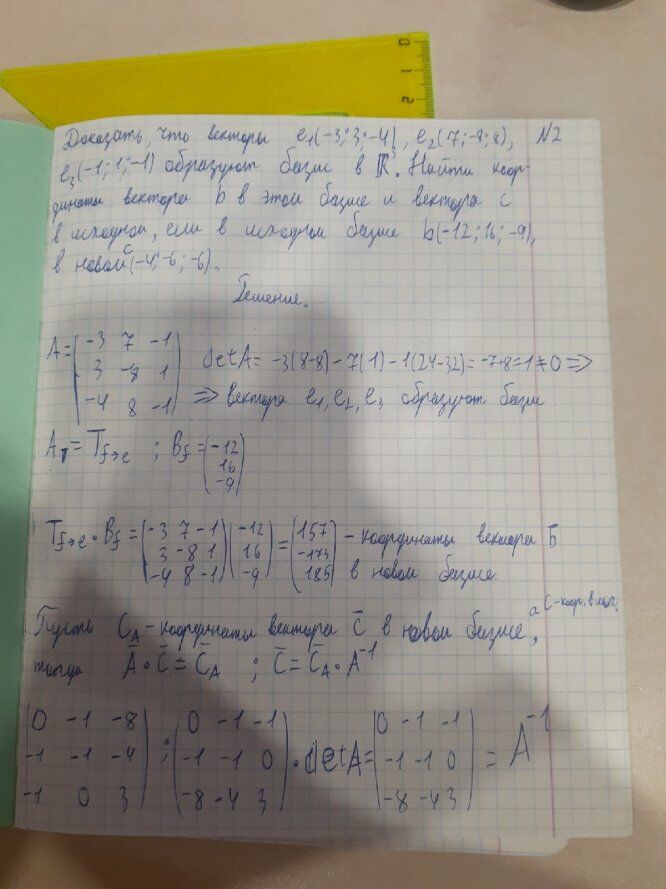 0 1 2
Доказать, что векторы e₁(-3; 3; -4), e₂(7; -8; 8), N2
e₃(-1; 1; -1) образуют базис в R³. Найти коор-
динаты вектора b в этом базисе и вектора c
в исходном, если в исходном базисе b(-12; 16; -9),
в новом c(-4; -6; -6).
Решение.
A = (-3 7 -1; 3 -8 1; -4 8 -1) det A = -3(8-8) - 7(1) - 1(24-32) = -7+8 = 1 ≠ 0 =>
=> вектора e₁, e₂, e₃ образуют базис
A = T f→e ; B f = (-12; 16; -9)
T f→e · B f = (-3 7 -1; 3 -8 1; -4 8 -1) (-12; 16; -9) = (157; -173; 185) - координаты вектора b
в новом базисе.
Пусть C A - координаты вектора c̄ в новом базисе, а C - коор. в
тогда Ā · C̄ = C̄ A ; C̄ = C̄ A · A⁻¹
(0 -1 -8; -1 -1 -4; -1 0 3) ; (0 -1 -1; -1 -1 0; -8 -4 3) · det A = (0 -1 -1; -1 -1 0; -8 -4 3) = A⁻¹